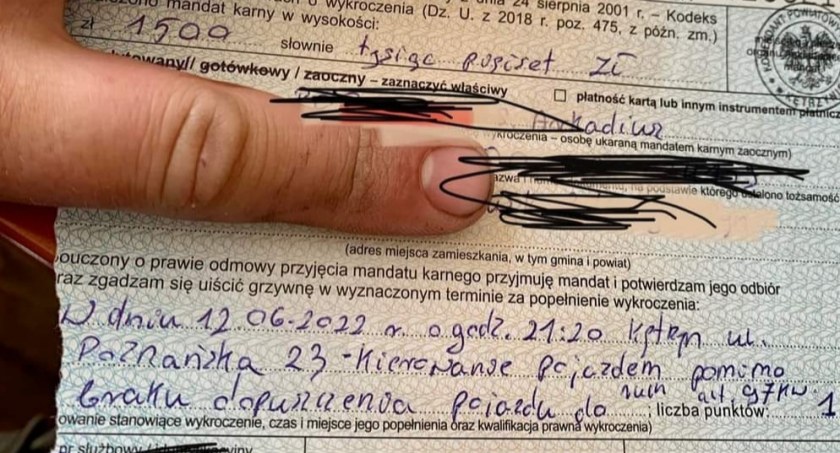 wykroczenia (Dz. U. z 24 sierpnia 2001 r. – Kodeks
z 2018 r. poz. 475, z późn. zm.)
mandat karny w wysokości:
zł 1500 słownie tysiąc pięćset zł
gotówkowy / zaoczny – zaznaczyć właściwy
☐ płatność kartą lub innym instrumentem płatnicz
Arkadiusz
wykroczenia – osobę ukaraną mandatem karnym zaocznym)
na podstawie którego ustalono tożsamość
(adres miejsca zamieszkania, w tym gmina i powiat)
ouczony o prawie odmowy przyjęcia mandatu karnego przyjmuję mandat i potwierdzam jego odbiór
raz zgadzam się uiścić grzywnę w wyznaczonym terminie za popełnienie wykroczenia:
W dniu 12.06.2022 r. o godz. 21:20 Kętrzyn ul.
Poznańska 23 - Kierowanie pojazdem pomimo
braku dopuszczenia pojazdu do ruch art. 97KW
; liczba punktów: 1
owanie stanowiące wykroczenie, czas i miejsce jego popełnienia oraz kwalifikacja prawna wykroczenia)